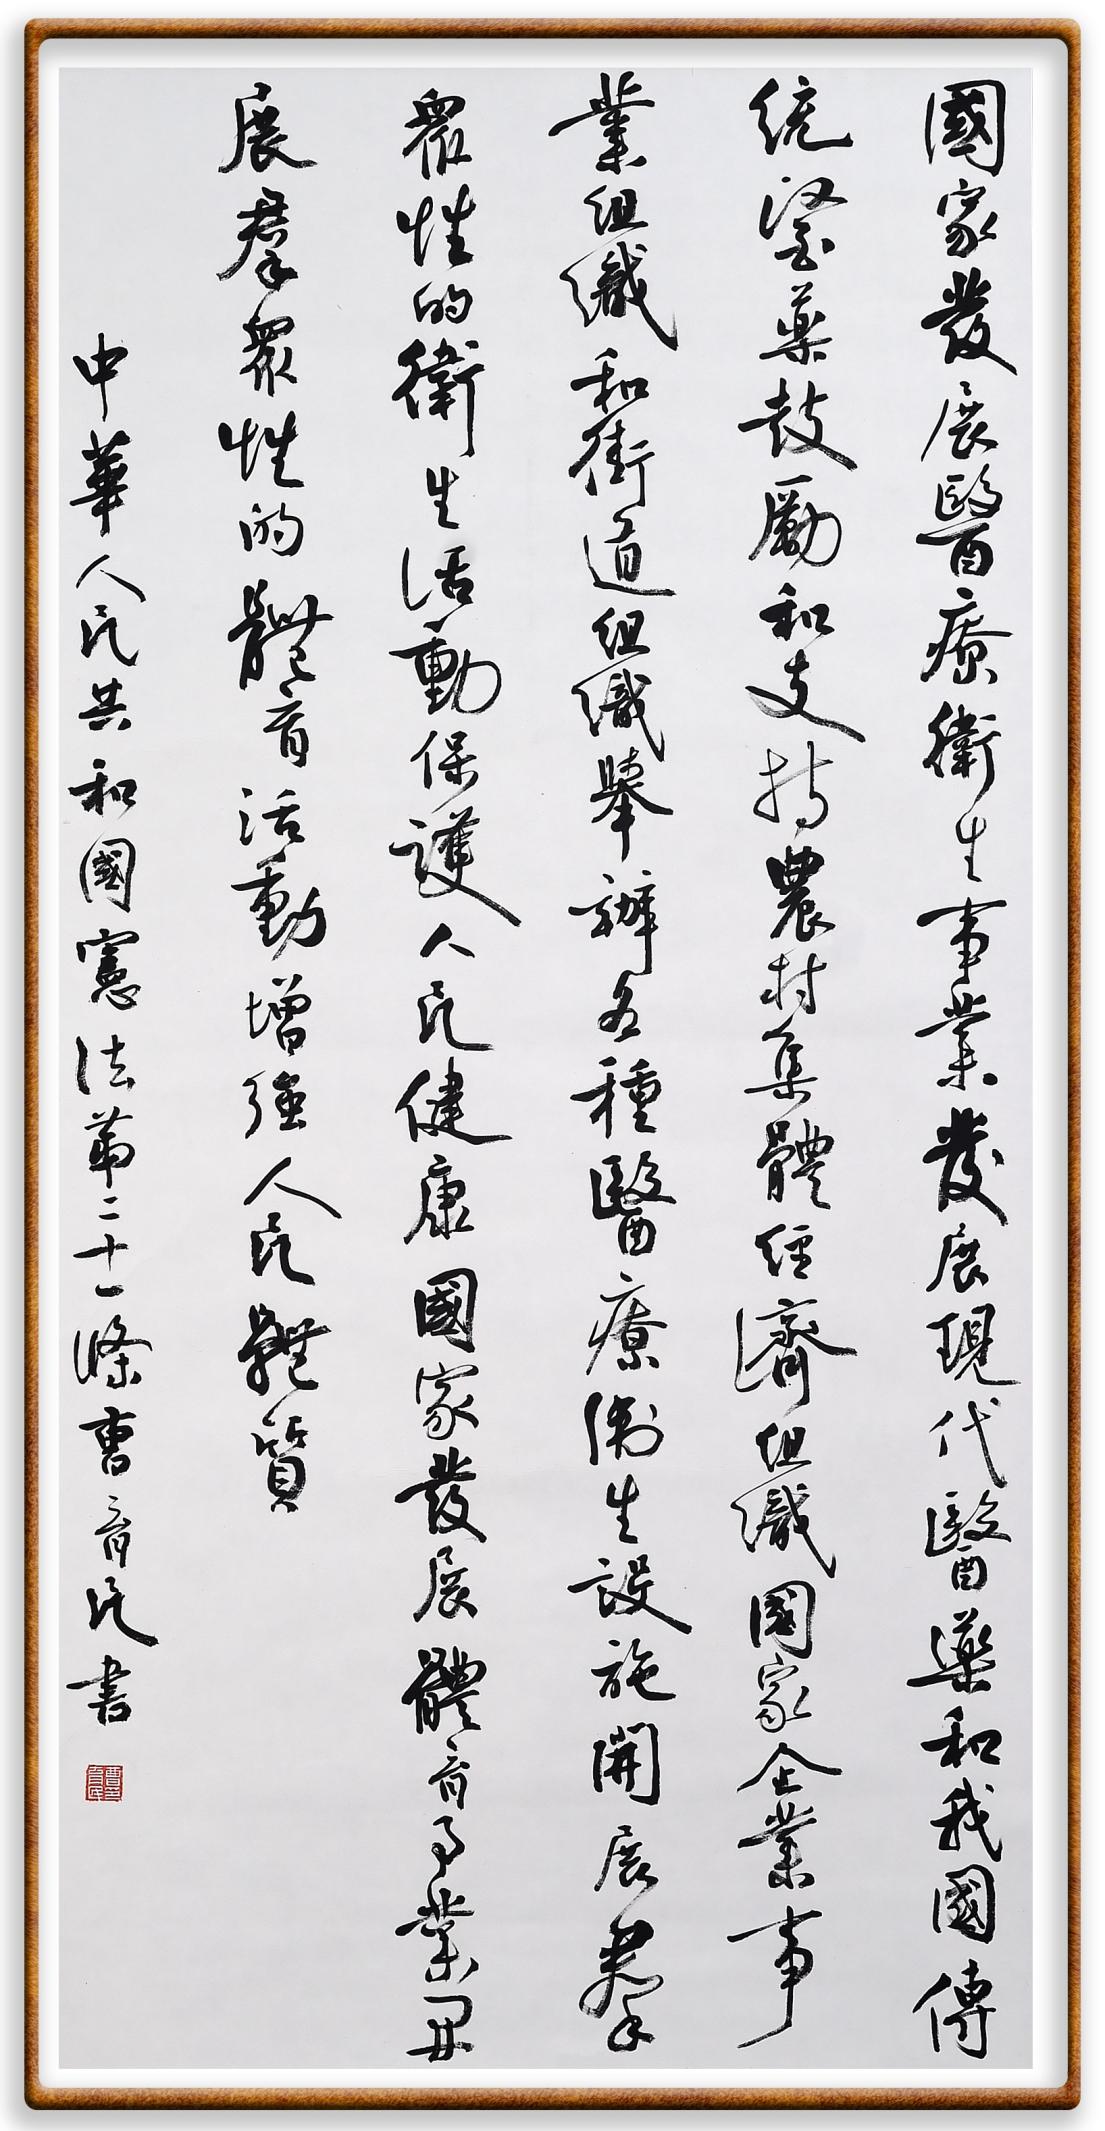 國家發展醫療衛生事業發展現代醫藥和我國傳
統醫藥鼓勵和支持農村集體經濟組織國家企業事
業組織和街道組織舉辦各種醫療衛生設施開展羣
眾性的衛生活動保護人民健康國家發展體育事業開
展羣眾性的體育活動增強人民體質
中華人民共和國憲法第二十一條曹育民書
曹育民